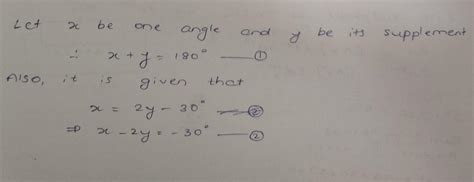 Let x be one angle and y be its supplement
∴ x + y = 180° —— ①
Also, it is given that
x = 2y - 30°
⇒ x - 2y = - 30° —— ②